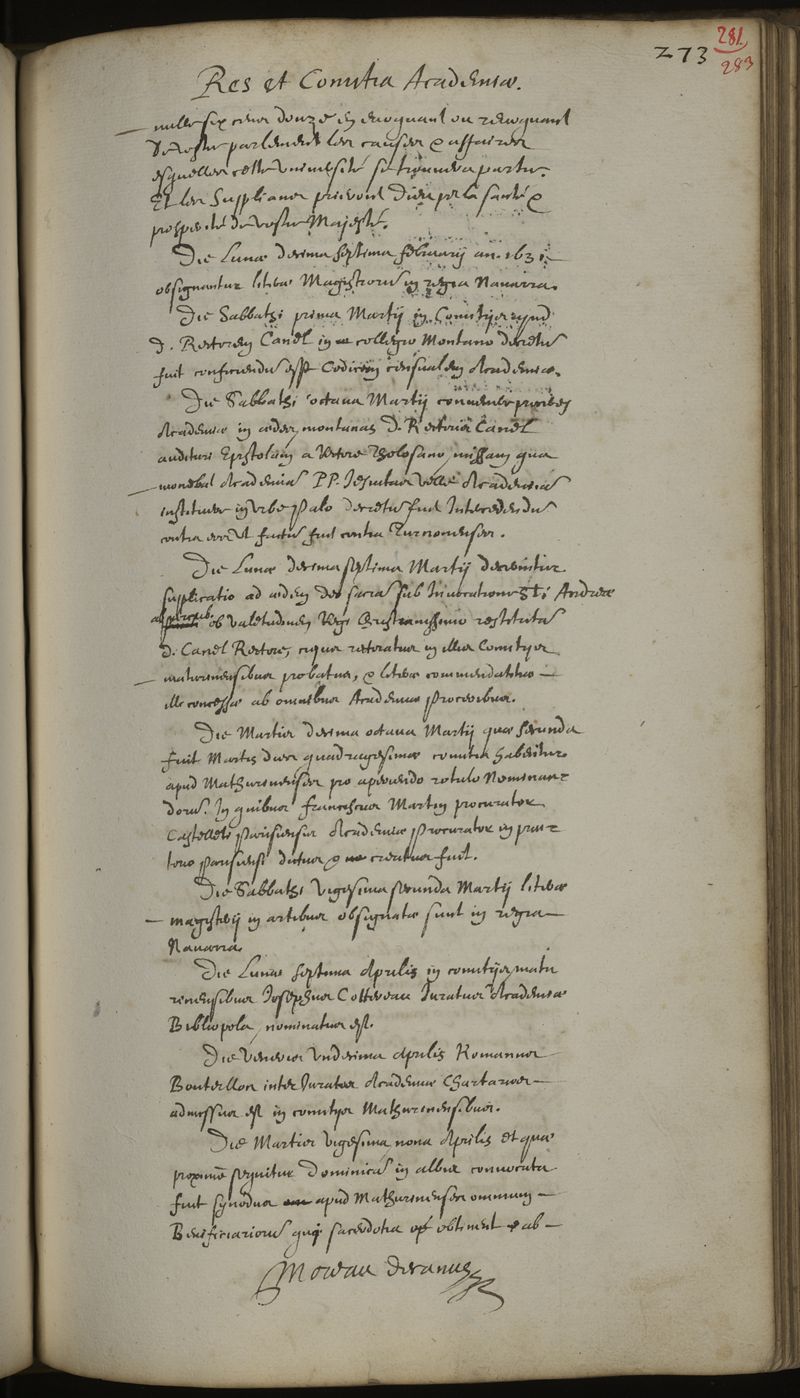 273 281
283
Res et Comitia Academiæ.
mille six cens douze en evoquant ou revoquant
de vostre parlement les causes & affaires
esquelles cette université se trouvera partie.
Et les Supplians prieront Dieu pr la santé &
prosperité de vostre Majesté.
Die Lunæ decima septima februarij an. 1631
obsignantur literæ Magistrorũ in regia Navarra.
Die Sabbathi prima Martij in Comitijs apud
d. Rectorem Canel in collegio Montano decretũ
fuit conficiendũ esse Codicem censualem Academiæ.
Die Sabbathi octava Martij convenere proceres
Academiæ in ædes montanas D. Rectoris Canel
audituri Epistolam a Rectore Tholosano missam qua
monebat Academiã PP. Jesuitas velle Academiã
instituere in urbe decretũ fuit Intercedendũ
contra eos ut factũ fuit contra Turnonenses.
Die Lunæ decima septima Martij decernitur
supplicatio ad ædem deo sacrã sub Invocatione Sti Andreæ
ob valetudinem Regi Christianissimo restitutã
d. Canel Rectore, cujus rectoratus in illis Comitijs
maturinensibus probatus, & literæ commendatitiæ
illi concessæ ab omnibus Academiæ proceribus.
Die Martis decima octava Martij quæ secunda
fuit Martis dies quadragesimæ comitia habentur
apud Mathurinenses pro aperiendo rotulo Nominan-
dorũ. In quibus franciscus Martin procurator
Castelleti parisiensis Academiæ procurator in præ-
torio parisiensi dictus & creatus fuit.
Die Sabbathi vigesima secunda Martij literæ
magisterij in artibus obsignatæ sunt in regia
Navarra.
Die Lunæ septima Aprilis in comitijs matu
rinensibus Josephus Cottereau Juratus Academiæ
Bibliopola, nominatus est.
Die Veneris undecima Aprilis Romanus
Bouterllon inter Juratos Academiæ Chartarios
admissus est in comitijs Mathurinensibus.
Die Martis vigesima nona Aprilis et quæ
proximè sequitur Dominicã in albis convocata
fuit synodus apud Mathurinenses omnium
Beneficiariorũ qui sacerdotia obtinent ab
Moreau decanus